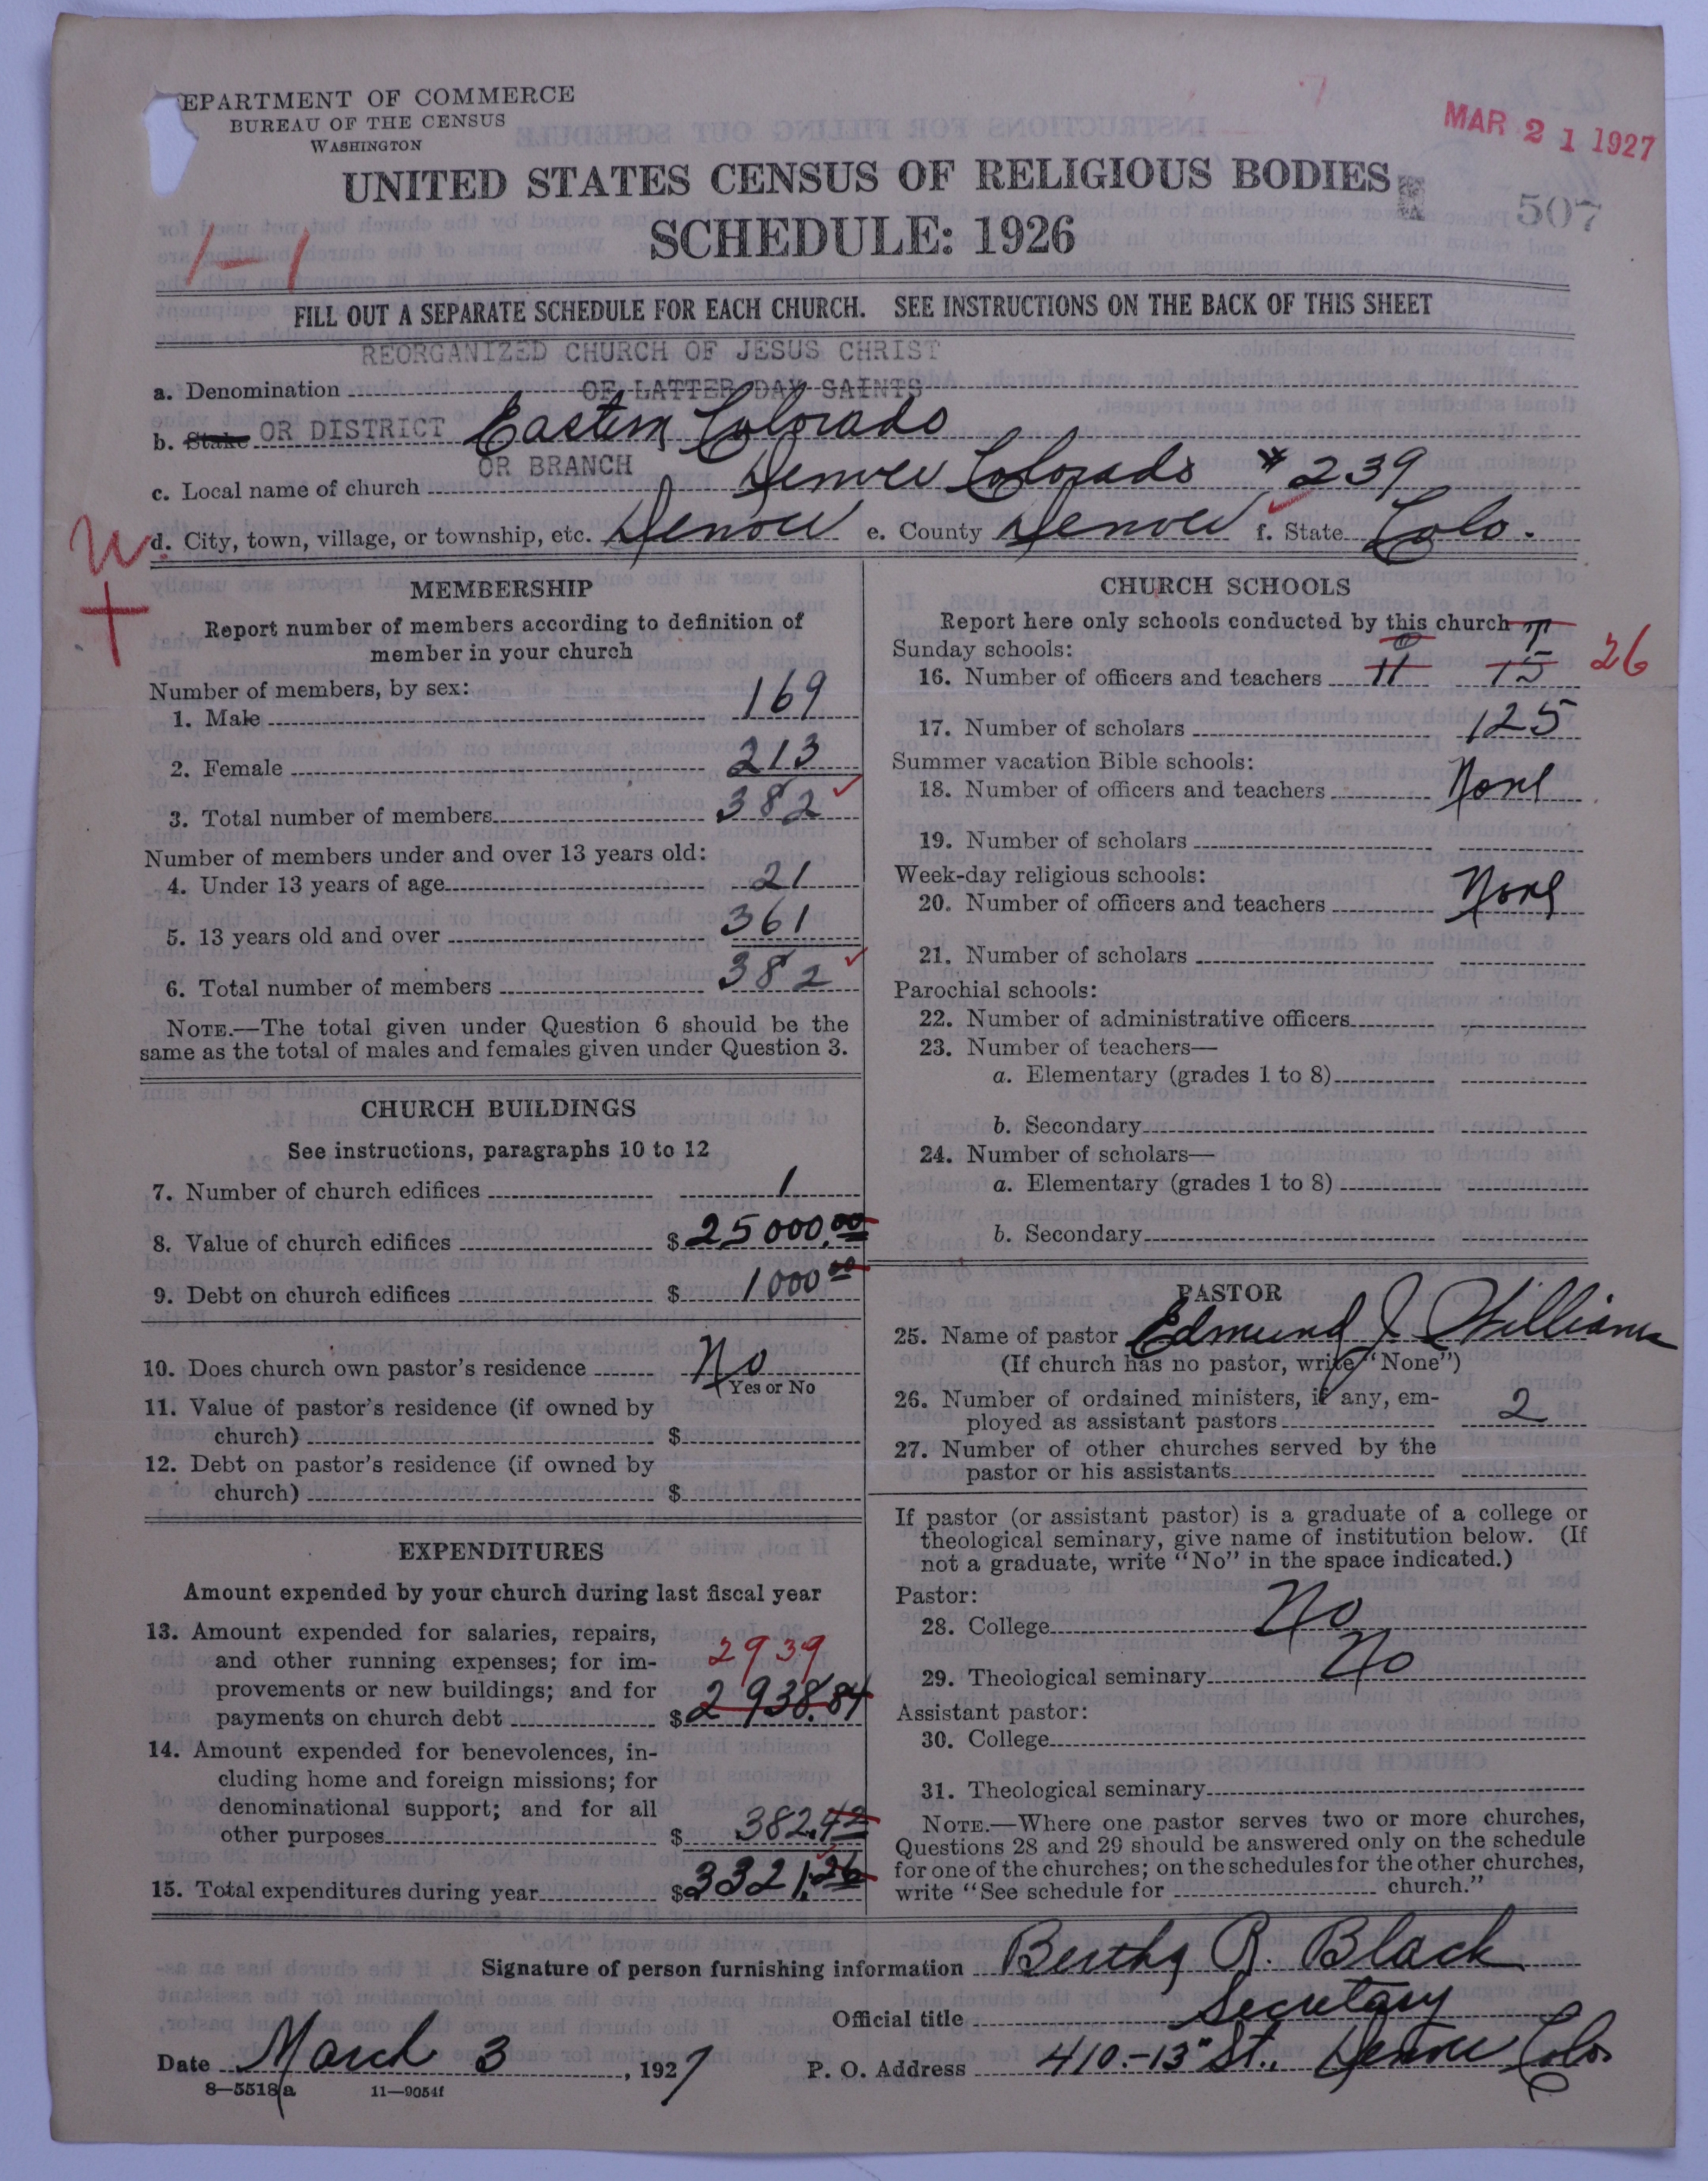 EPARTMENT OF COMMERCE
BUREAU OF THE CENSUS
WASHINGTON
MAR 21 1927
UNITED STATES CENSUS OF RELIGIOUS BODIES
507
SCHEDULE: 1926
1-1
FILL OUT A SEPARATE SCHEDULE FOR EACH CHURCH. SEE INSTRUCTIONS ON THE BACK OF THIS SHEET
REORGANIZED CHURCH OF JESUS CHRIST
a. Denomination OF LATTER DAY SAINTS
b. Stake OR DISTRICT Eastern Colorado
OR BRANCH
c. Local name of church Denver Colorado # 239
W
d. City, town, village, or township, etc. Denver e. County Denver f. State Colo.
MEMBERSHIP
Report number of members according to definition of
member in your church
Number of members, by sex:
1. Male 169
2. Female 213
3. Total number of members 382
Number of members under and over 13 years old:
4. Under 13 years of age 21
5. 13 years old and over 361
6. Total number of members 382
NOTE.—The total given under Question 6 should be the
same as the total of males and females given under Question 3.
CHURCH BUILDINGS
See instructions, paragraphs 10 to 12
7. Number of church edifices 1
8. Value of church edifices $25000.00
9. Debt on church edifices $1000 00
10. Does church own pastor's residence No
Yes or No
11. Value of pastor's residence (if owned by
church) $
12. Debt on pastor's residence (if owned by
church) $
EXPENDITURES
Amount expended by your church during last fiscal year
13. Amount expended for salaries, repairs,
and other running expenses; for im- 2939
provements or new buildings; and for
payments on church debt $2938.84
14. Amount expended for benevolences, in-
cluding home and foreign missions; for
denominational support; and for all
other purposes $382.42
15. Total expenditures during year $3321.26
CHURCH SCHOOLS
Report here only schools conducted by this church
Sunday schools: O T
16. Number of officers and teachers 11 15 26
17. Number of scholars 125
Summer vacation Bible schools:
18. Number of officers and teachers None
19. Number of scholars
Week-day religious schools:
20. Number of officers and teachers None
21. Number of scholars
Parochial schools:
22. Number of administrative officers
23. Number of teachers—
a. Elementary (grades 1 to 8)
b. Secondary
24. Number of scholars—
a. Elementary (grades 1 to 8)
b. Secondary
PASTOR
25. Name of pastor Edmund J Williams
(If church has no pastor, write "None")
26. Number of ordained ministers, if any, em-
ployed as assistant pastors 2
27. Number of other churches served by the
pastor or his assistants
If pastor (or assistant pastor) is a graduate of a college or
theological seminary, give name of institution below. (If
not a graduate, write "No" in the space indicated.)
Pastor:
28. College No
29. Theological seminary No
Assistant pastor:
30. College
31. Theological seminary
NOTE.—Where one pastor serves two or more churches,
Questions 28 and 29 should be answered only on the schedule
for one of the churches; on the schedules for the other churches,
write "See schedule for church."
Signature of person furnishing information Bertha R. Black
Official title Secretary
Date March 3, 1927 P. O. Address 410.-13" St., Denver Colo
8—5518a 11—9054f